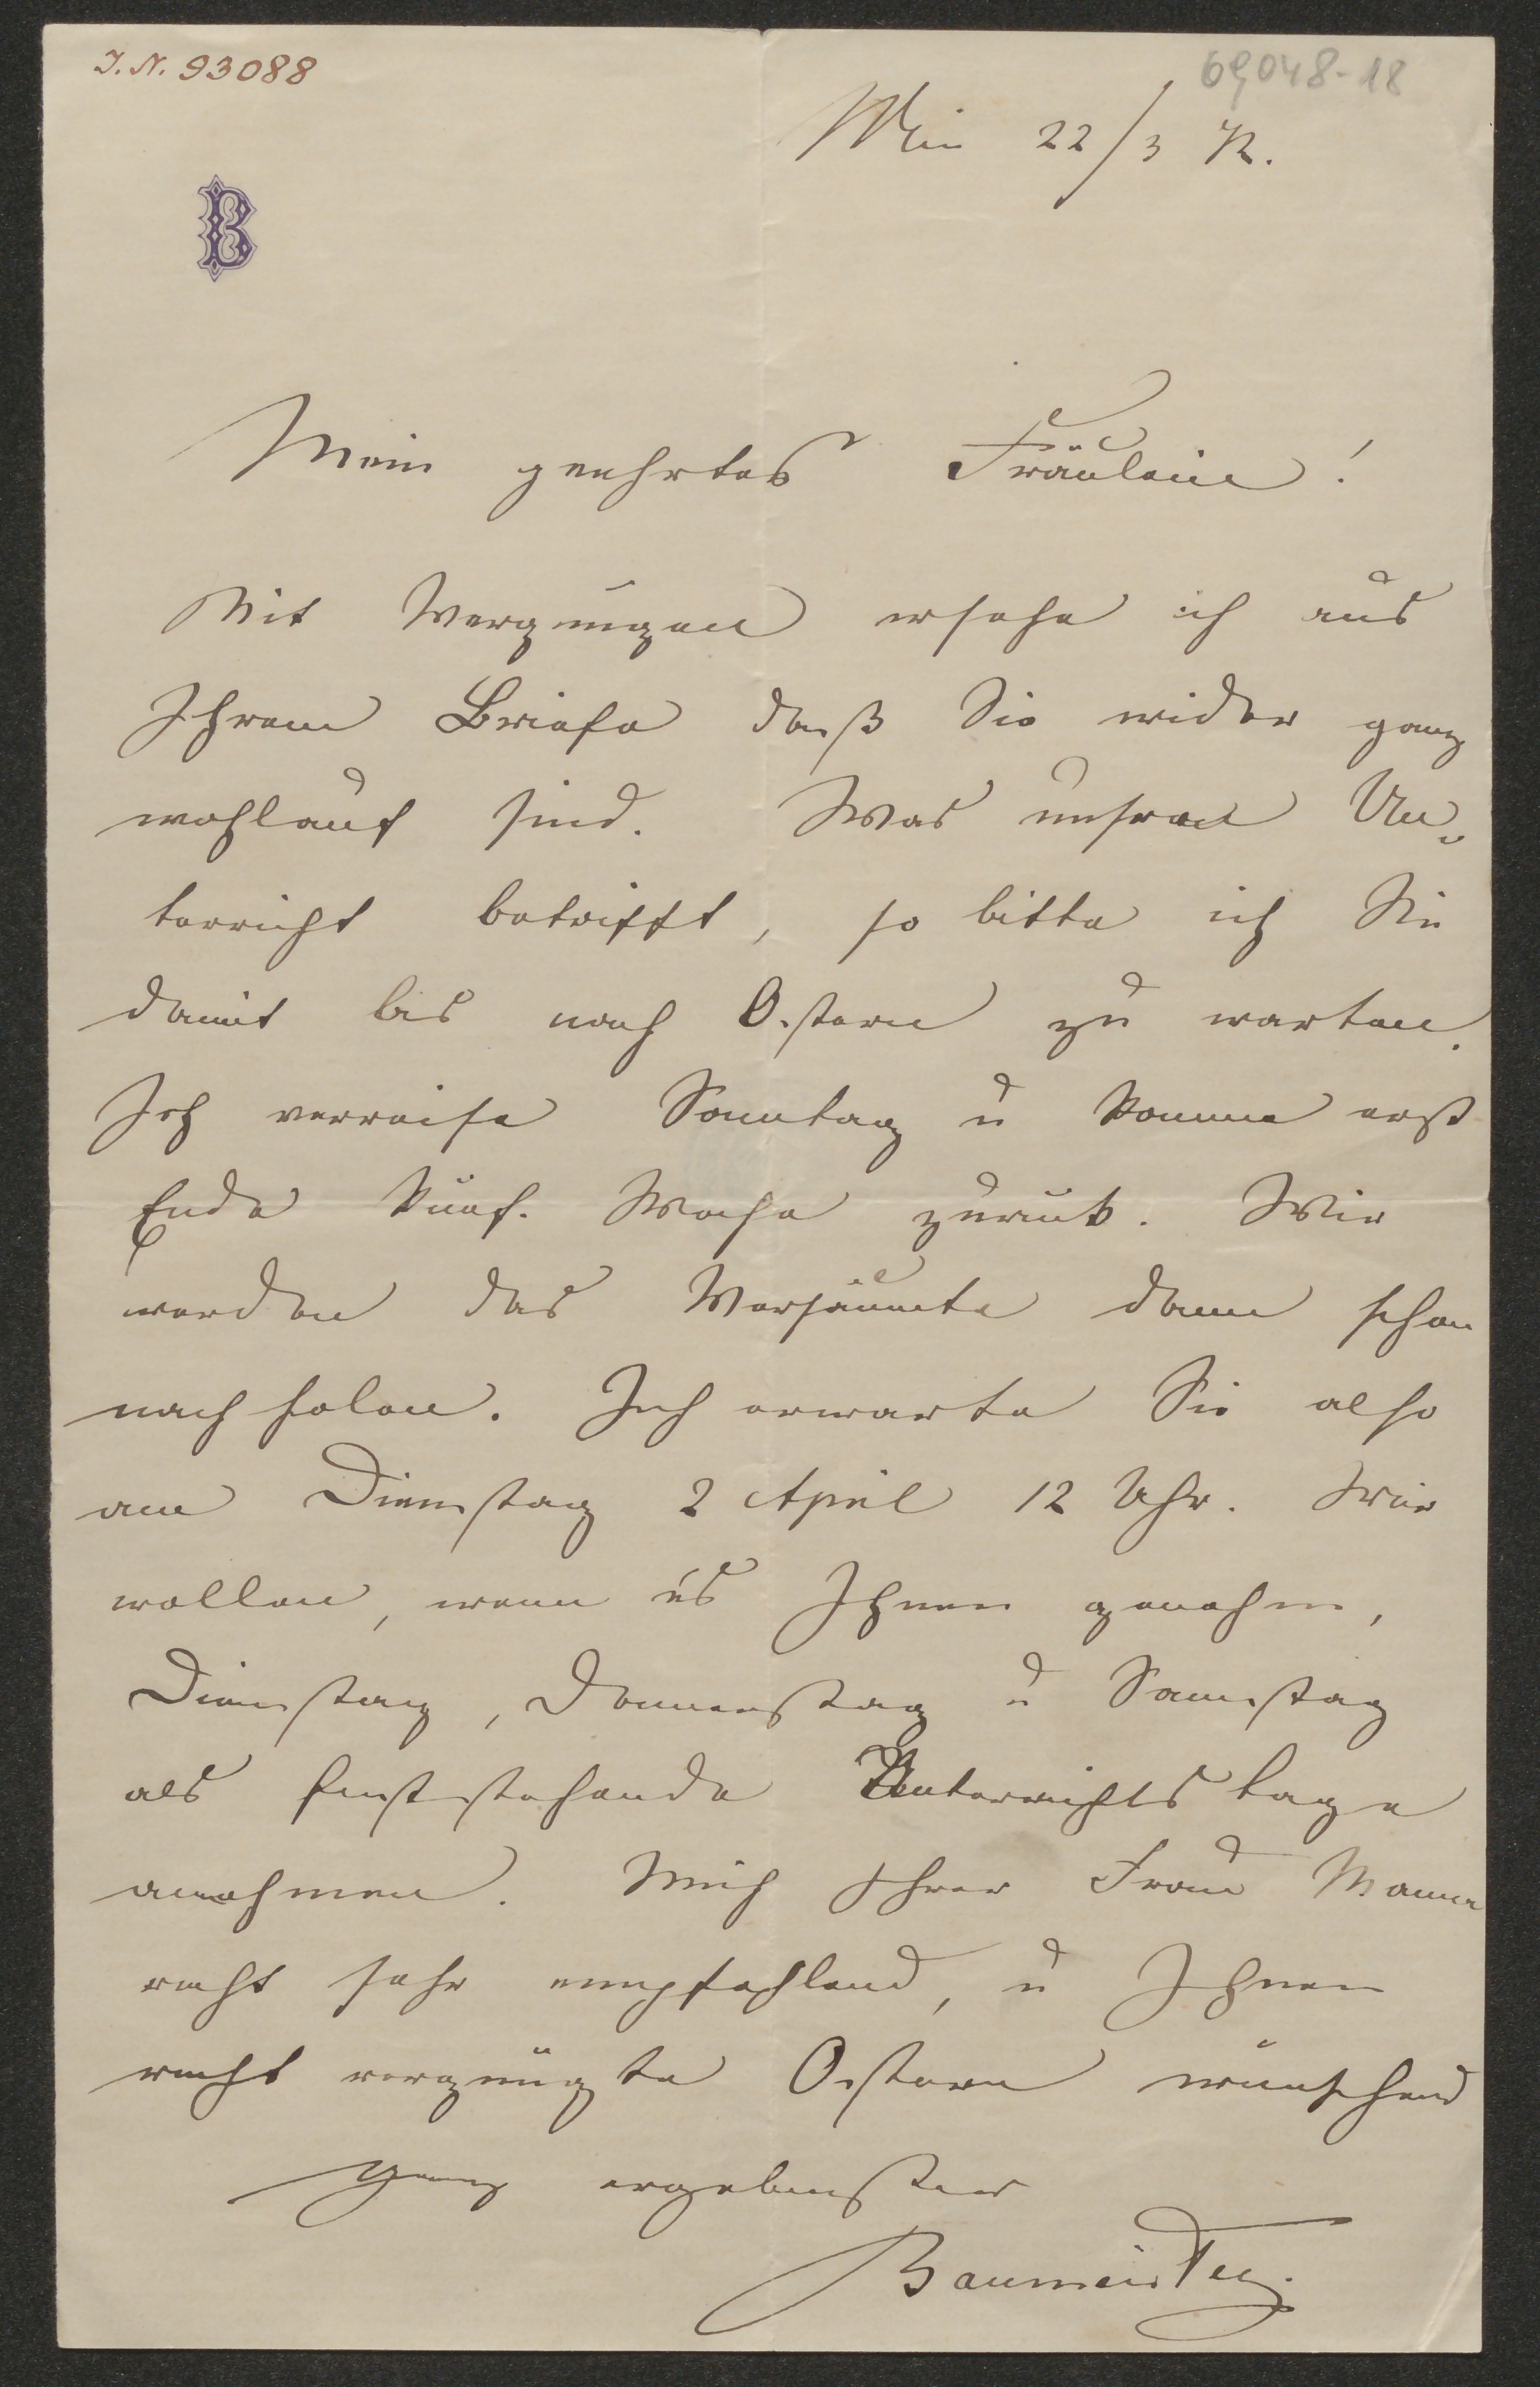 J. N. 93088
69048-18
Wien 22/3 72.
B
Mein geehrtes Fräulein!
Mit Vergnügen ersehe ich aus
Ihrem Briefe daß Sie wider ganz
wohlauf sind. Was unsren Un-
terricht betrifft, so bitte ich Sie
damit bis nach Ostern zu warten.
Ich verreise Sonntag u komme erst
Ende künf. Woche zurück. Wir
werden das Versäumte dann schon
nach holen. Ich erwarte Sie also
am Dienstag 2 April 12 Uhr. Wir
wollen, wenn es Ihnen genehm,
Dienstag, Donnerstag u Samstag
als feststehende Unterrichts tage
annehmen. Mich Ihrer Frau Mama
recht sehr empfehlend, u Ihnen
recht vergnügte Ostern wünschend
Ganz ergebenster
Baumeister.